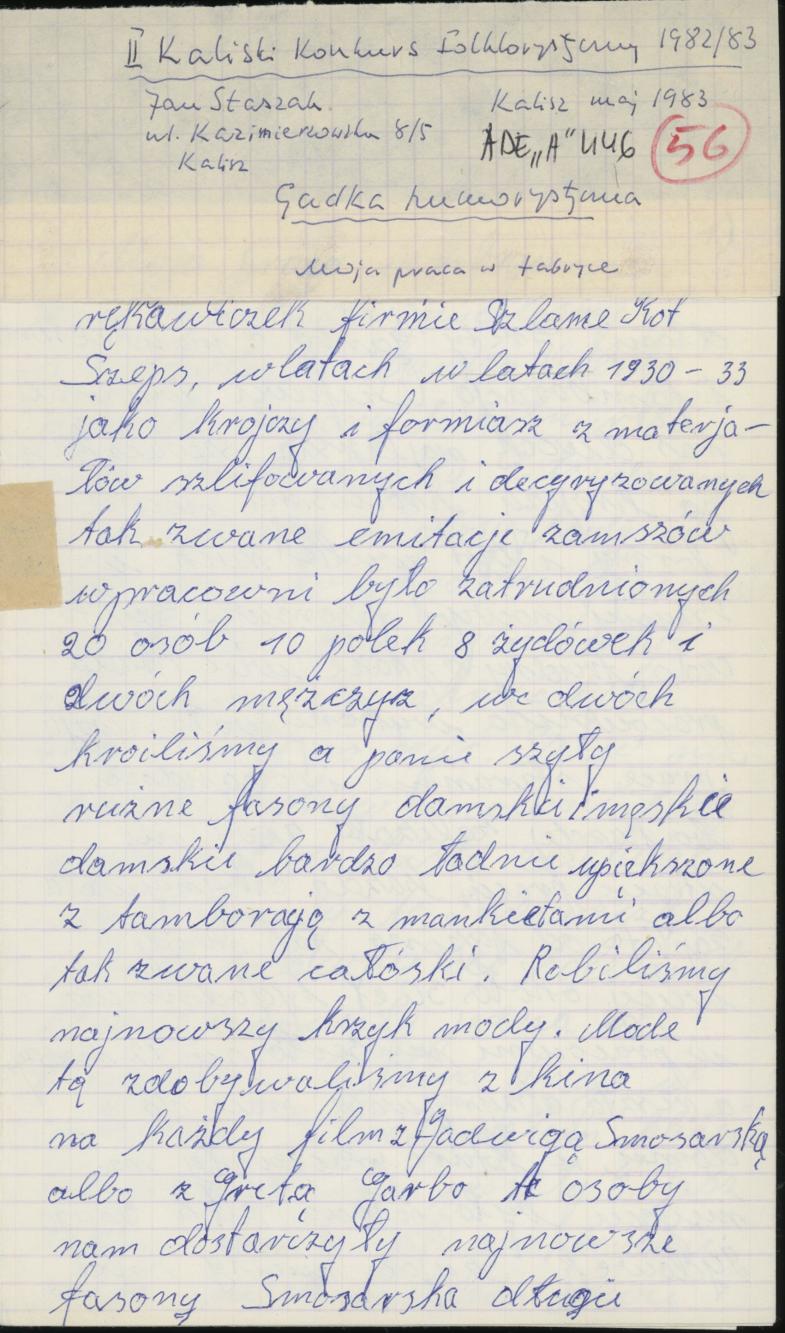 II Kaliski Konkurs Folklorystyczny 1982/83
Jan Staszak Kalisz maj 1983
ul. Kazimierzowska 8/5 ADE „A" 446 56
Kalisz
Gadka humorystyczna
Moja praca w fabryce
rękawiczek firmie Szlame Kot
Szeps, wlatach w latach 1930 – 33
jako krojczy i formiasz z materja-
łów szlifowanych i decyryzowanych
tak zwane emitacje zamszów
wpracowni było zatrudnionych
20 osób 10 polek 8 żydówek i
dwóch mężczyz, we dwóch
kroiliśmy a panie szyły
rużne fasony damskie i męskie
damskie bardzo ładnie upiekszone
z tamborają z mankietami albo
tak zwane całóski. Robiliśmy
najnowszy krzyk mody. Mode
tą zdobywaliśmy z kina
na każdy film z Jadwigą Smosarską
albo z Gretą Garbo te osoby
nam dostarczyły najnowsze
fasony Smosarska długie